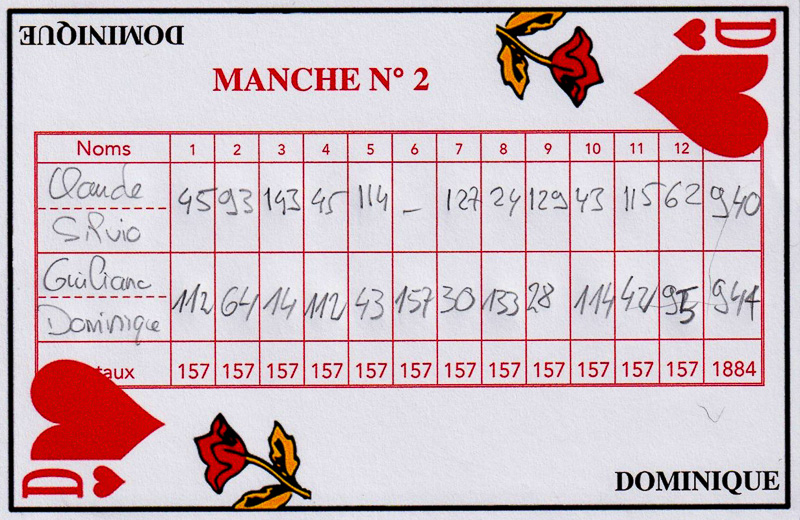 DOMINIQUE
D
MANCHE N° 2
Noms 1 2 3 4 5 6 7 8 9 10 11 12
Claude
45 93 143 45 114 - 127 24 129 43 115 62 940
Silvio
Giuliana
112 64 14 112 43 157 30 133 28 114 42 95 944
Dominique
taux 157 157 157 157 157 157 157 157 157 157 157 157 1884
D
DOMINIQUE